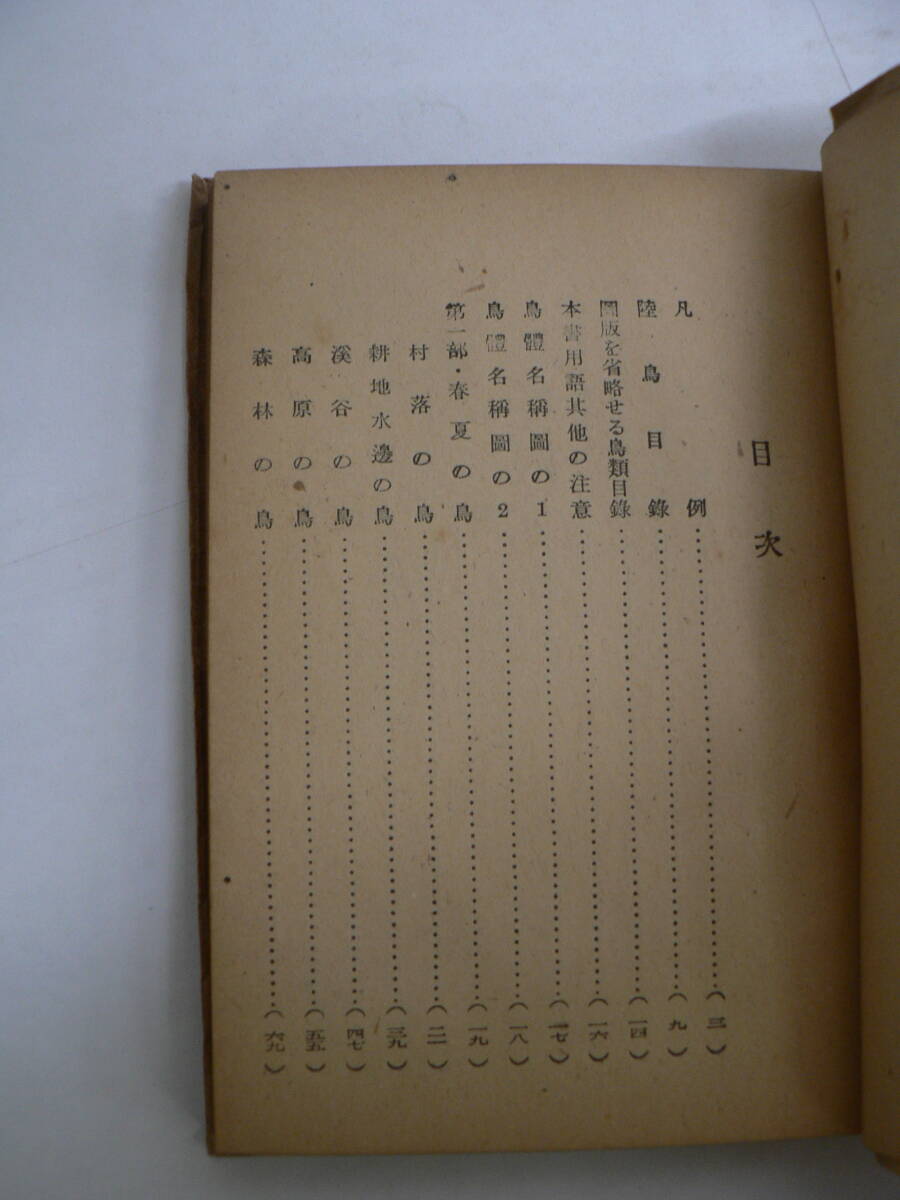 目次
凡例……(三)
陸鳥目錄……(九)
圖版を省略せる鳥類目錄……(一四)
本書用語其他の注意……(一六)
鳥體名稱圖の1……(一七)
鳥體名稱圖の2……(一八)
第一部・春夏の鳥……(一九)
村落の鳥……(二一)
耕地水邊の鳥……(三九)
溪谷の鳥……(四七)
高原の鳥……(五五)
森林の鳥……(六九)